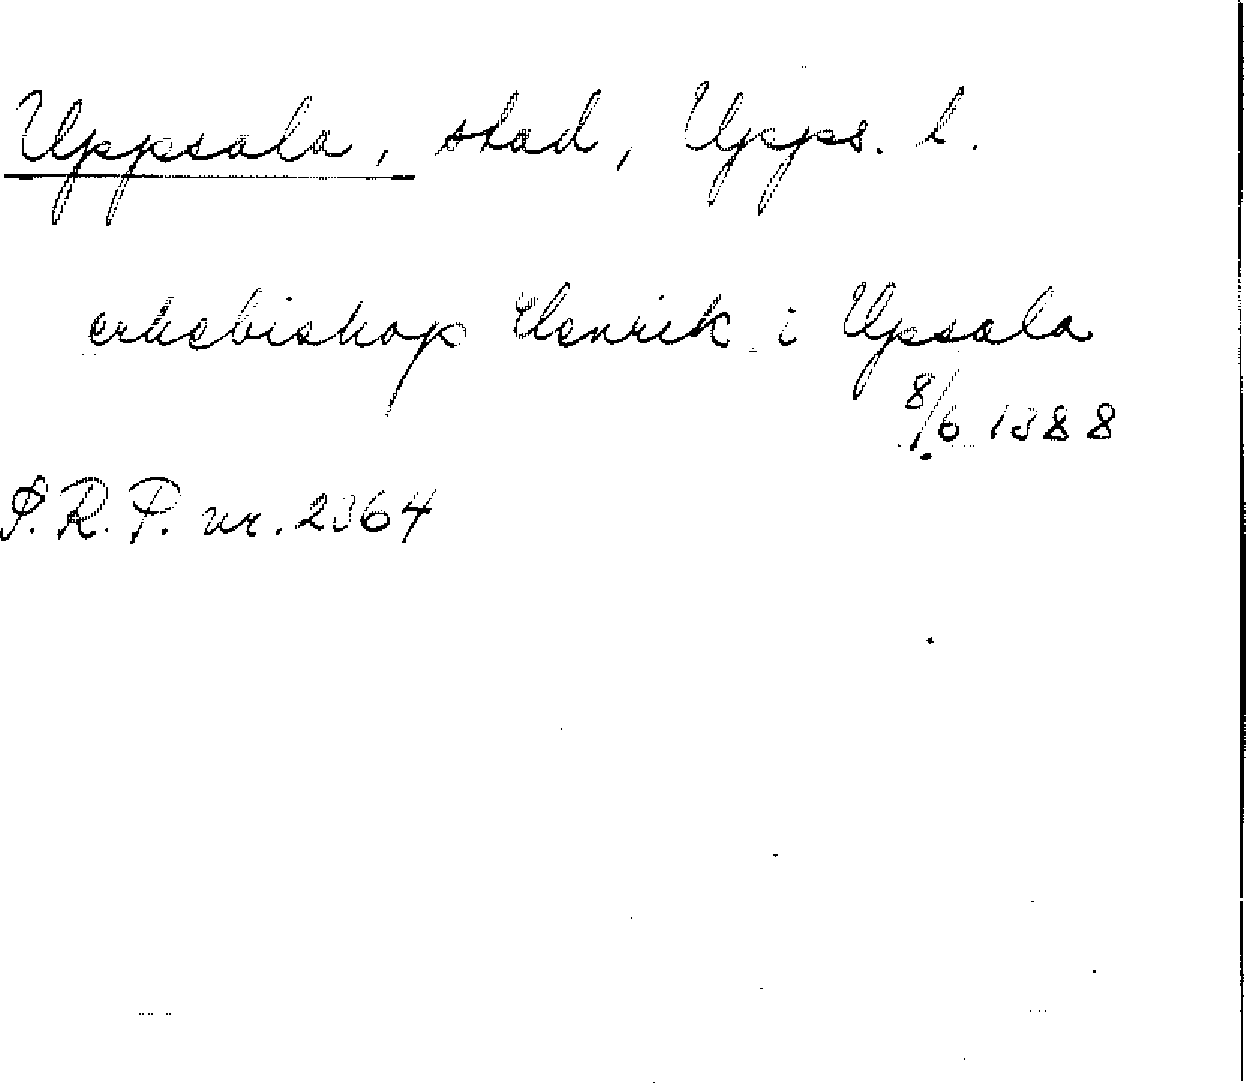 Uppsala, stad, Upps. l.
erkebiskop Henrik i Upsala
8/6 1388
S.R.P. nr. 2364